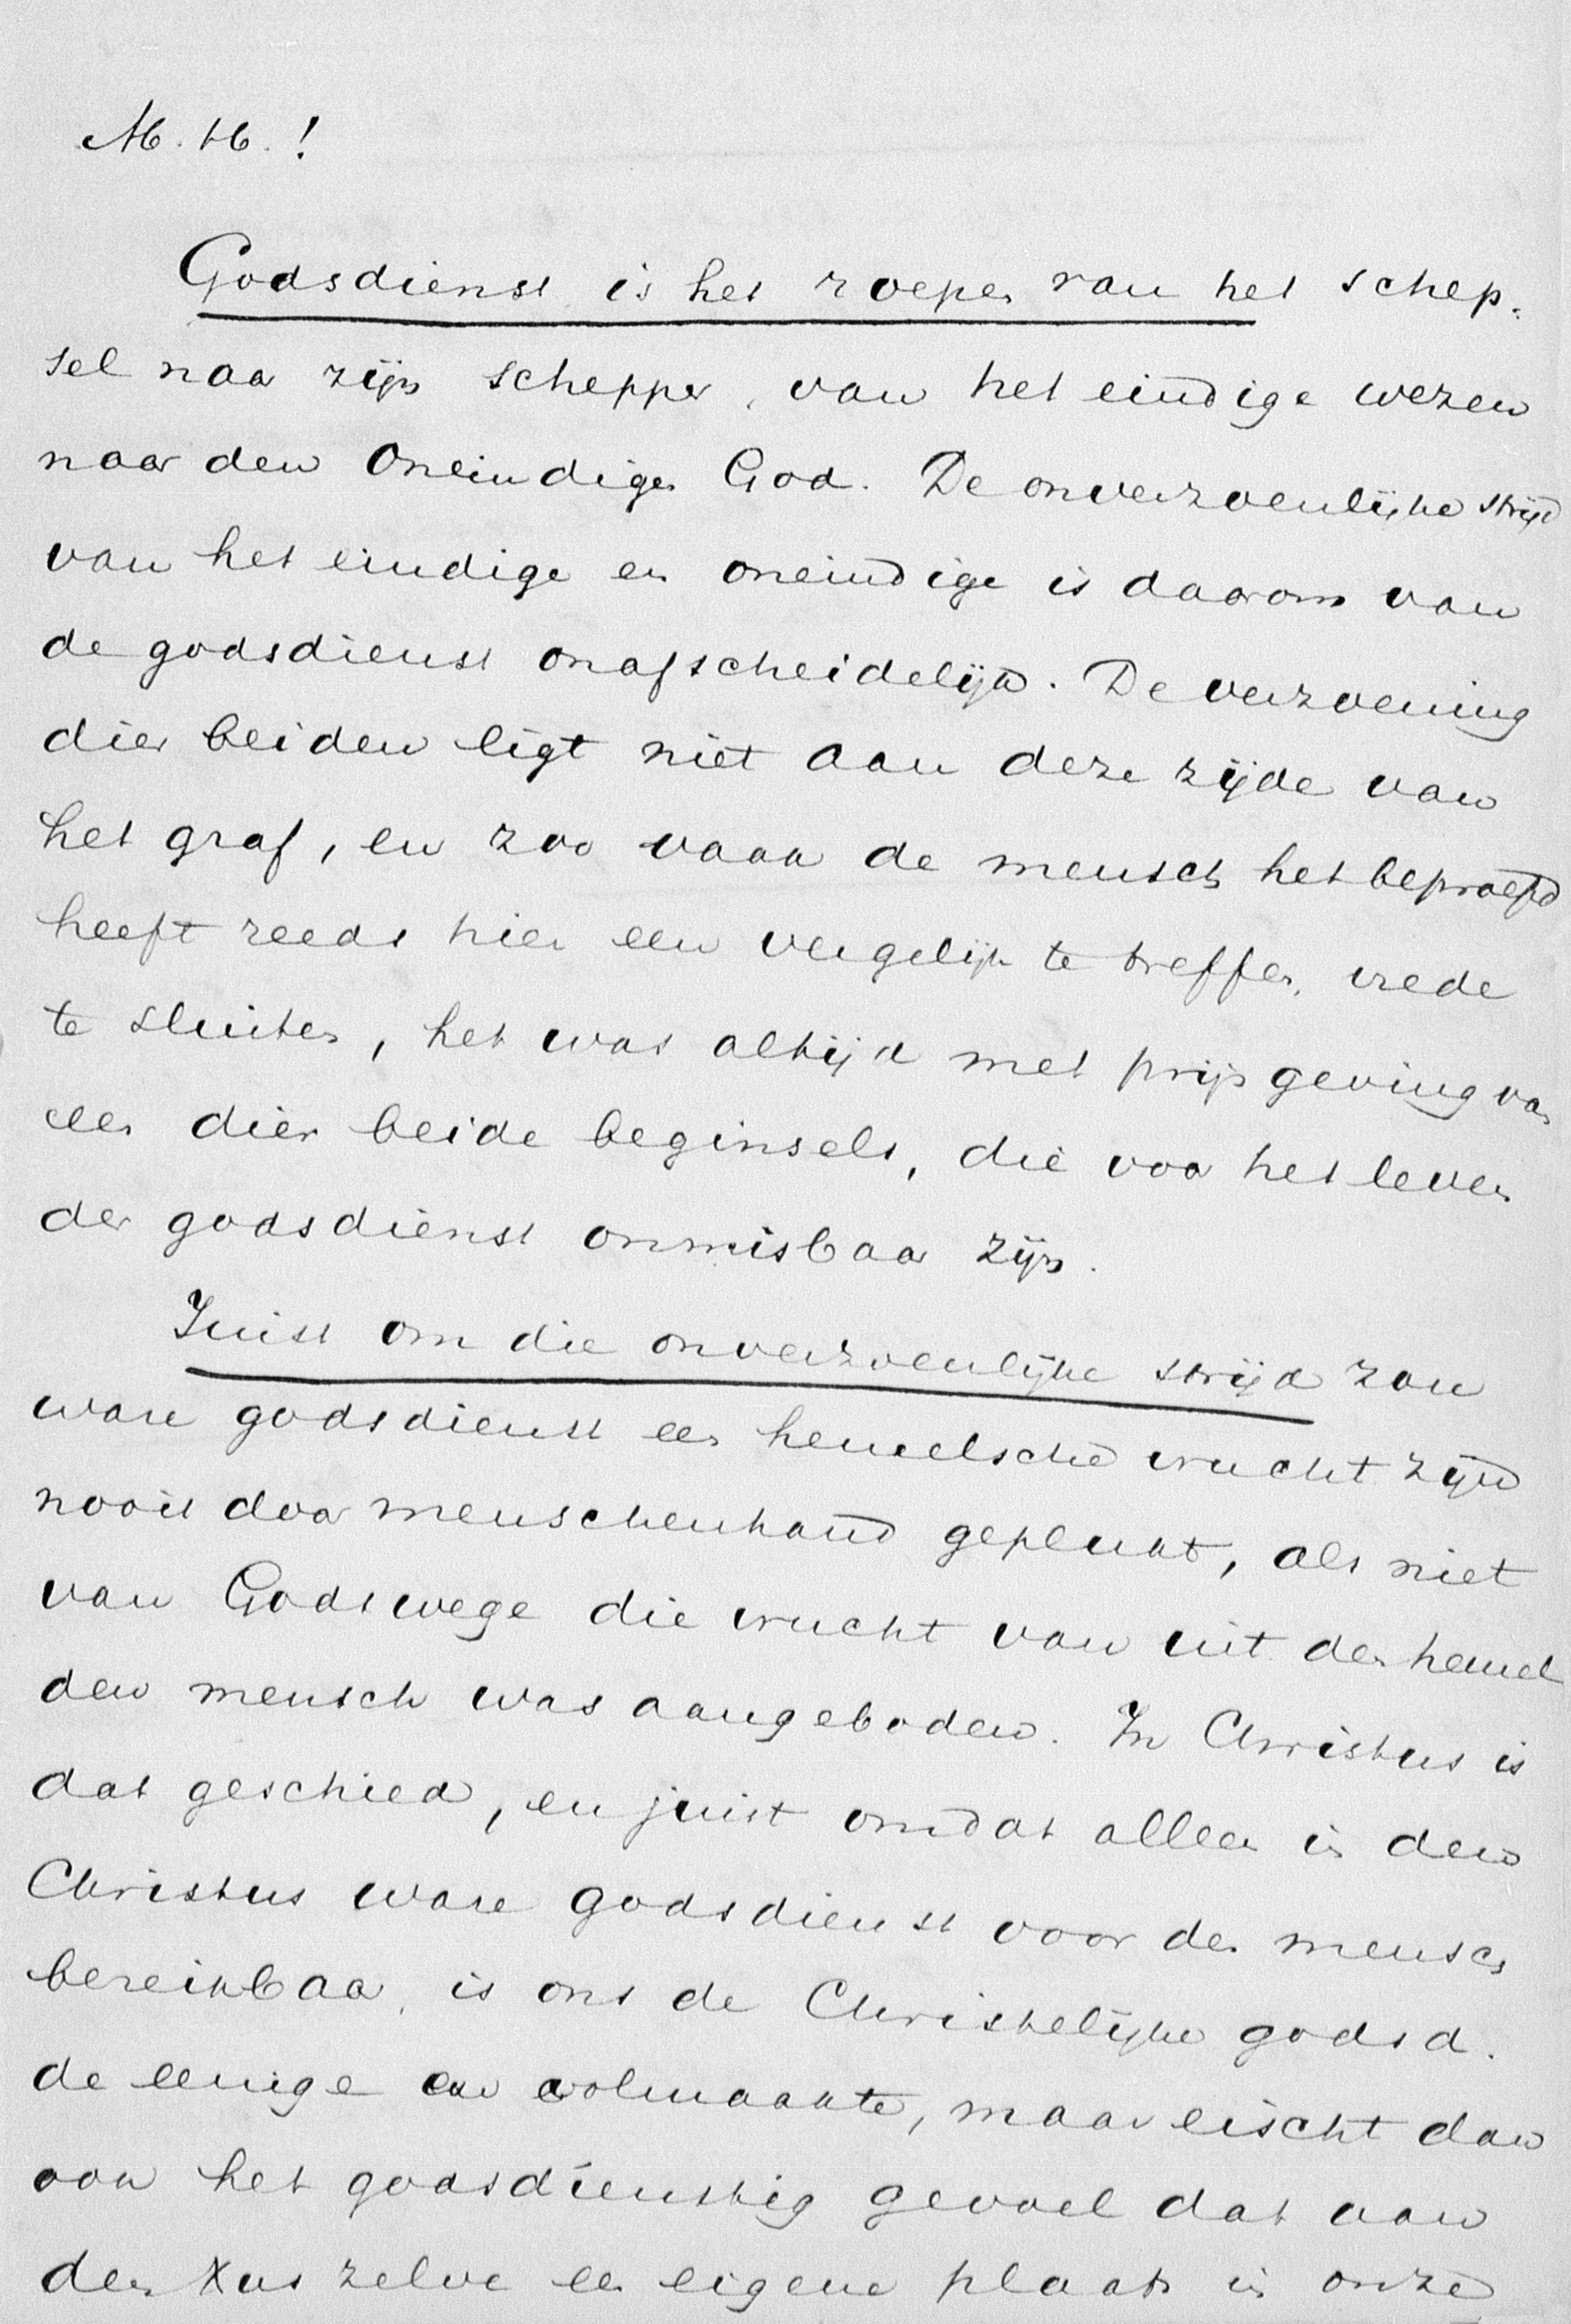 M. H. !
Godsdienst is het roepen van het schep-
sel naar zijn schepper, van het eindige wezen
naar den Oneindigen God. De onverzoenlijke strijd
van het eindige en oneindige is daarom van
de godsdienst onafscheidelijk. De verzoening
dier beiden ligt niet aan deze zijde van
het graf, en zoo vaak de mensch het beproefd
heeft reeds hier een vergelijk te treffen, vrede
te sluiten, het was altijd met prijsgeving van
een dier beide beginsels, die voor het leven
der godsdienst onmisbaar zijn.
Juist om die onverzoenlijke strijd zou
ware godsdienst een hemelsche vrucht zijn
nooit door menschenhand geplukt, als niet
van Godswege die vrucht van uit den hemel
den mensch was aangeboden. In Christus is
dat geschied, en juist omdat alleen in den
Christus ware godsdienst voor den mensch
bereikbaar, is ons de Christelijke godsd.
de eenige en volmaakte, maar eischt dan
ook het godsdienstig gevoel dat aan
den Xus zelve een eigene plaats in onze